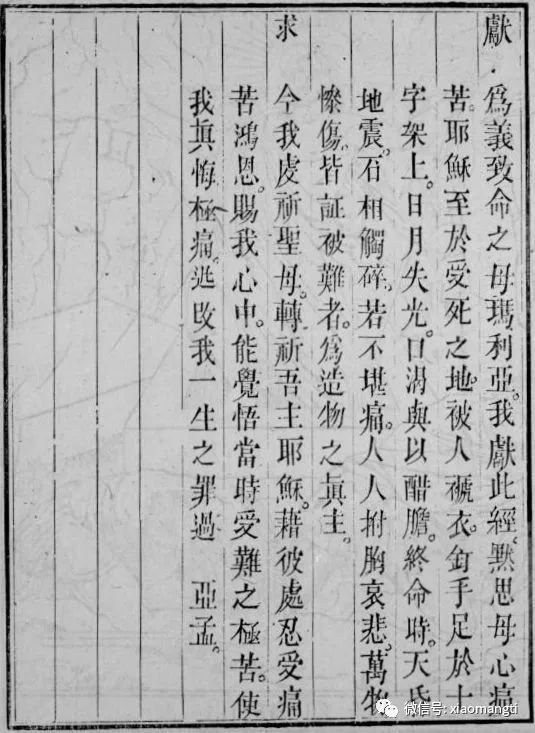 獻 爲義致命之母瑪利亞。我獻此經。默思母心痛
苦。耶穌至於受死之地。被人褫衣。釘手足於十
字架上。日月失光。口渴與以醋膽。終命時。天昏
地震。石相觸碎。若不堪痛。人人拊胸哀悲。萬物
慘傷。皆証被難者。爲造物之眞主。
求 今我虔祈聖母。轉祈吾主耶穌。藉彼處忍受痛
苦鴻恩。賜我心中。能覺悟當時受難之極苦。使
我眞悔極痛。迯改我一生之罪過 亞孟。
微信号: xiaomangti